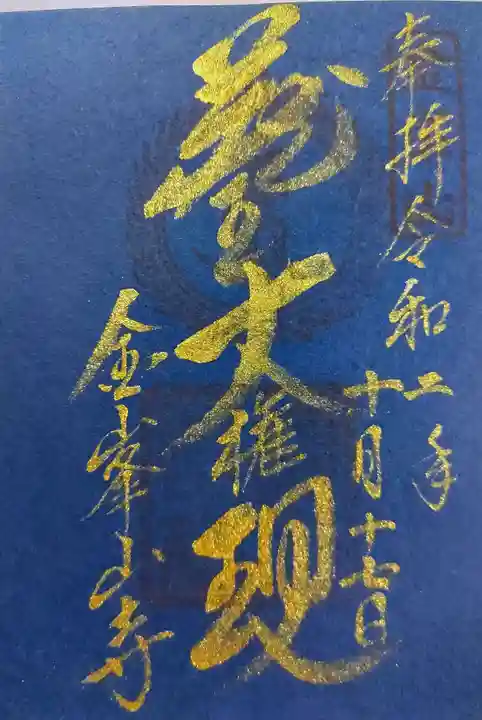 奉拝 令和二年
十月十七日
蔵王大権現
金峯山寺